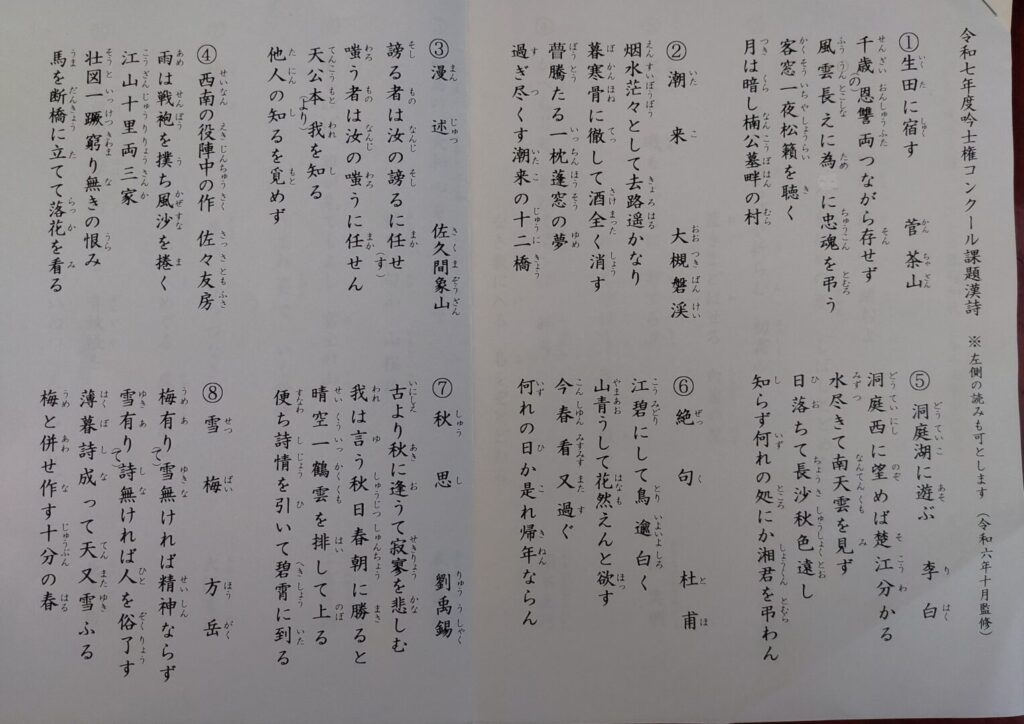 令和七年度吟士権コンクール課題漢詩 ※左側の読みも可とします (令和六年十月監修)
①生田に宿す 菅 茶山
千歳の恩讐両つながら存せず
風雲長えに為に忠魂を弔う
客窓一夜松籟を聴く
月は暗し楠公墓畔の村
②潮来 大槻磐渓
烟水茫々として去路遥かなり
暮寒骨に徹して酒全く消す
瞢騰たる一枕蓬窓の夢
過ぎ尽くす潮来の十二橋
③漫述 佐久間象山
謗る者は汝の謗るに任せ
嗤う者は汝の嗤うに任せん
天公本我を知る
他人の知るを覓めず
④西南の役陣中の作 佐々友房
雨は戦袍を撲ち風沙を捲く
江山十里両三家
壮図一蹶窮り無きの恨み
馬を断橋に立てて落花を看る
⑤洞庭湖に遊ぶ 李白
洞庭西に望めば楚江分かる
水尽きて南天雲を見ず
日落ちて長沙秋色遠し
知らず何れの処にか湘君を弔わん
⑥絶句 杜甫
江碧にして鳥逾白く
山青うして花然えんと欲す
今春看又過ぐ
何れの日か是れ帰年ならん
⑦秋思 劉禹錫
古より秋に逢うて寂寥を悲しむ
我は言う秋日春朝に勝ると
晴空一鶴雲を排して上る
便ち詩情を引いて碧霄に到る
⑧雪梅 方岳
梅有り雪無ければ精神ならず
雪有り詩無ければ人を俗了す
薄暮詩成って天又雪ふる
梅と併せ作す十分の春